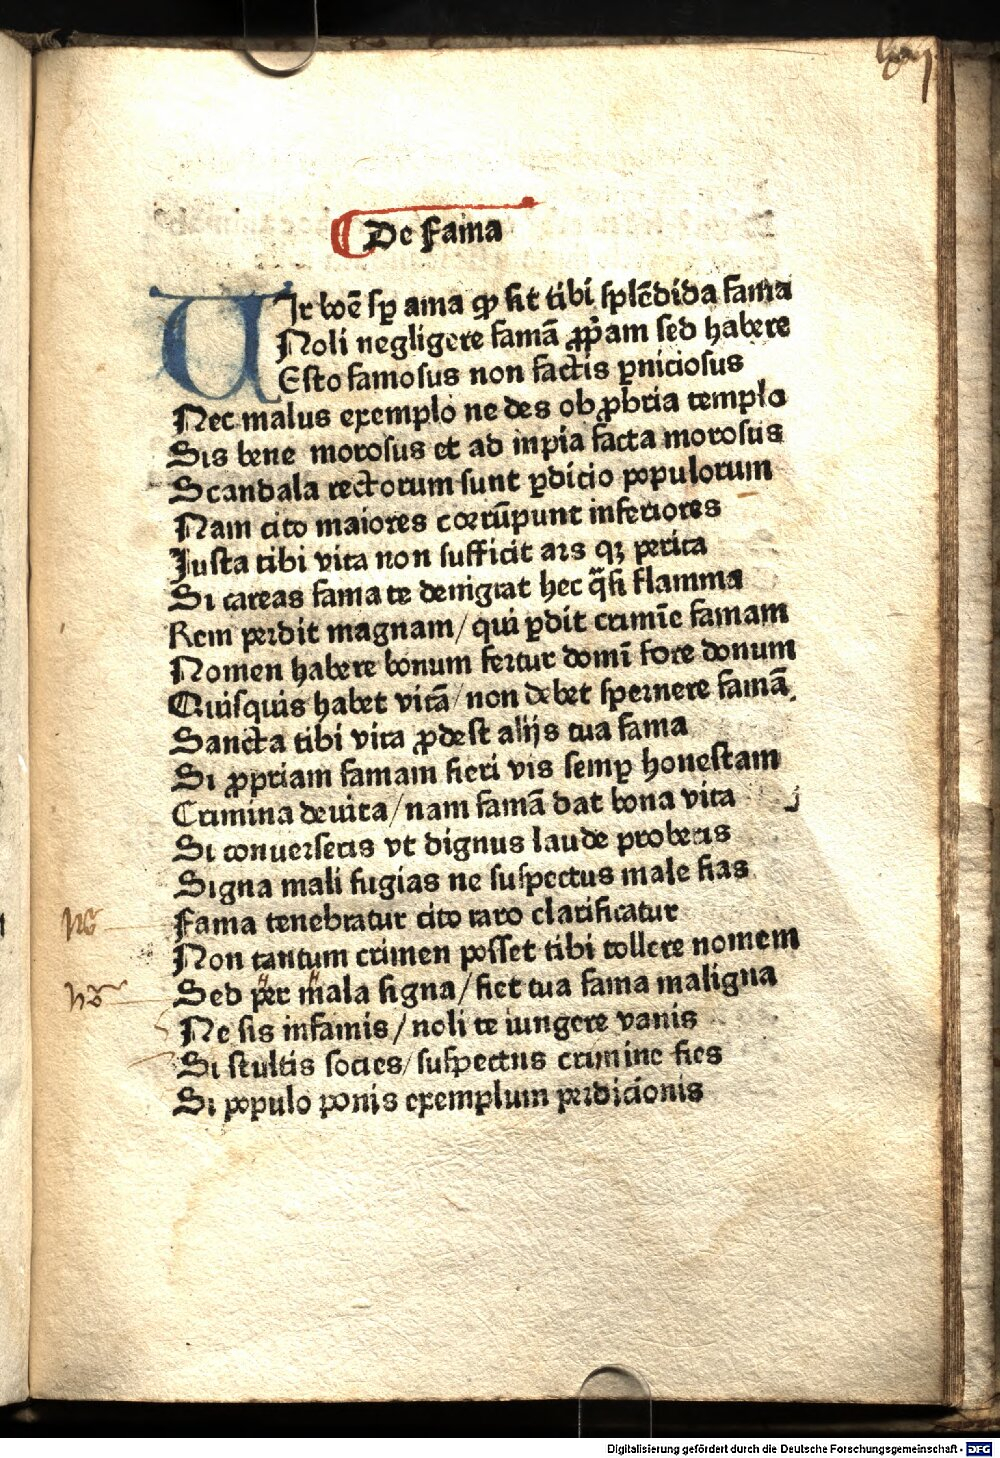 De Fama
Vir boē sp ama ꝙ sit tibi splēdida fama
Noli negligere famā ꝓpͥam sed habere
Esto famosus non factis ꝑniciosus
Nec malus exemplo ne des ob ꝓbria templo
Sis bene morosus et ad inpia facta morosus
Scandala rectorum sunt ꝑdicio populorum
Nam cito maiores corrūpunt inferiores
Iusta tibi vita non sufficit ars qꝫ perita
Si careas fama te denigrat hec q̄si flamma
Rem perdit magnam/ qui ꝑdit crimīe famam
Nomen habere bonum fertur domī fore donum
Quisquis habet vitā/ non debet spernere famā.
Sancta tibi vita ꝓdest alijs tua fama
Si ꝓpriam famam fieri vis semꝑ honestam
Crimina deuita/ nam famā dat bona vita
Si conuerseris vt dignus laude proberis
Signa mali fugias ne suspectus male fias
Fama tenebratur cito raro clarificatur
Non tantum crimen posset tibi tollere nomem
Sed per mala signa/ fiet tua fama maligna
Ne sis infamis/ noli te iungere vanis
Si stultis socies/ suspectus crimine fies
Si populo ponis exemplum perdicionis
Digitalisierung gefördert durch die Deutsche Forschungsgemeinschaft - DFG